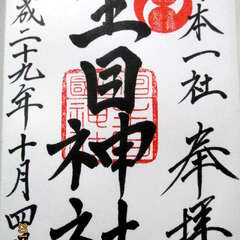 本一社 奉拝
生目神社
成二十九年十月四日